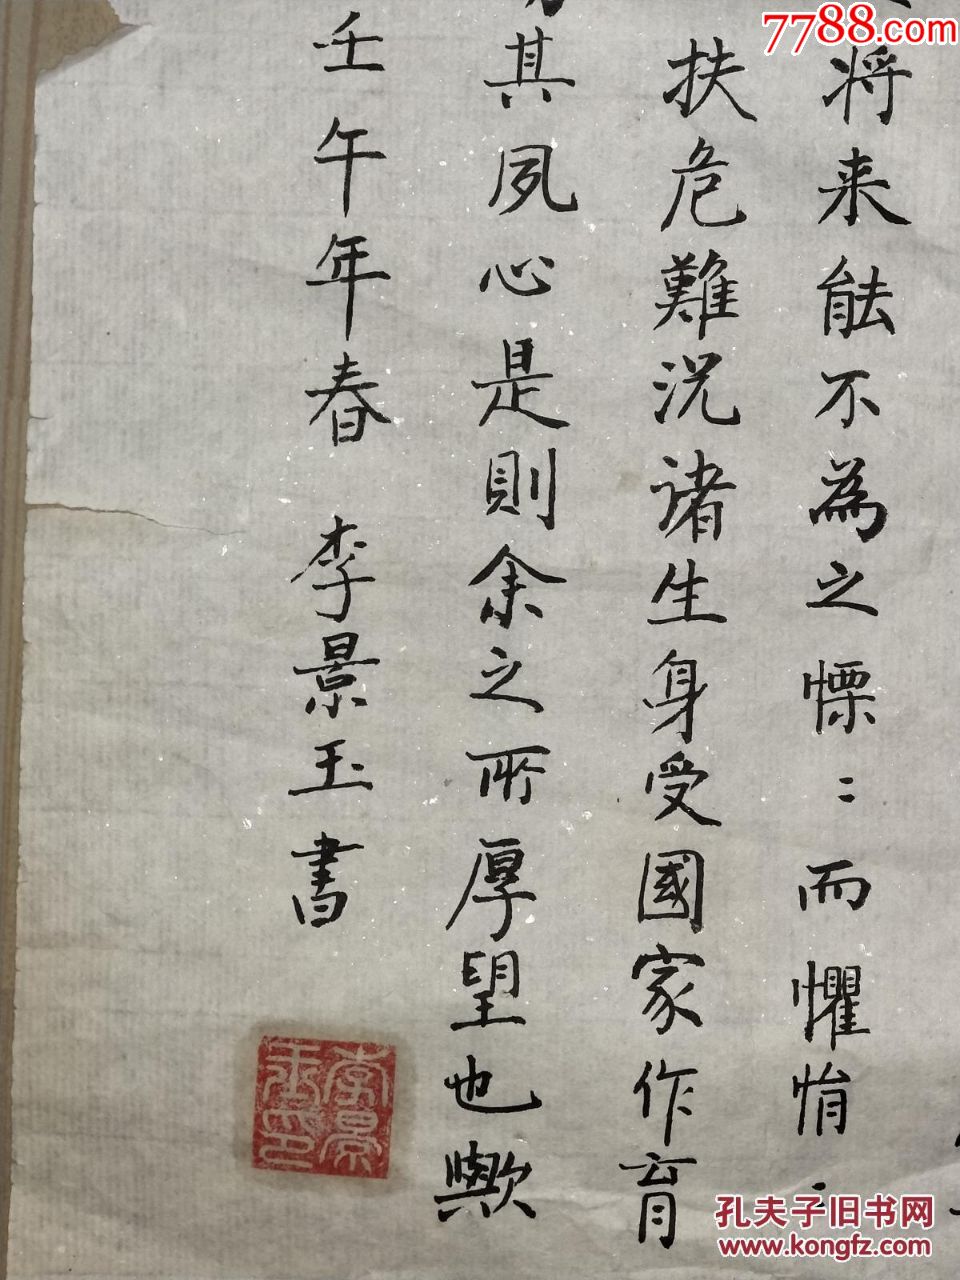 将来能不為之慄〻而懼悁〻
扶危難況諸生身受國家作育
其夙心是則余之所厚望也歟
壬午年春 李景玉書
李景玉印
7788.com
孔夫子旧书网
www.kongfz.com